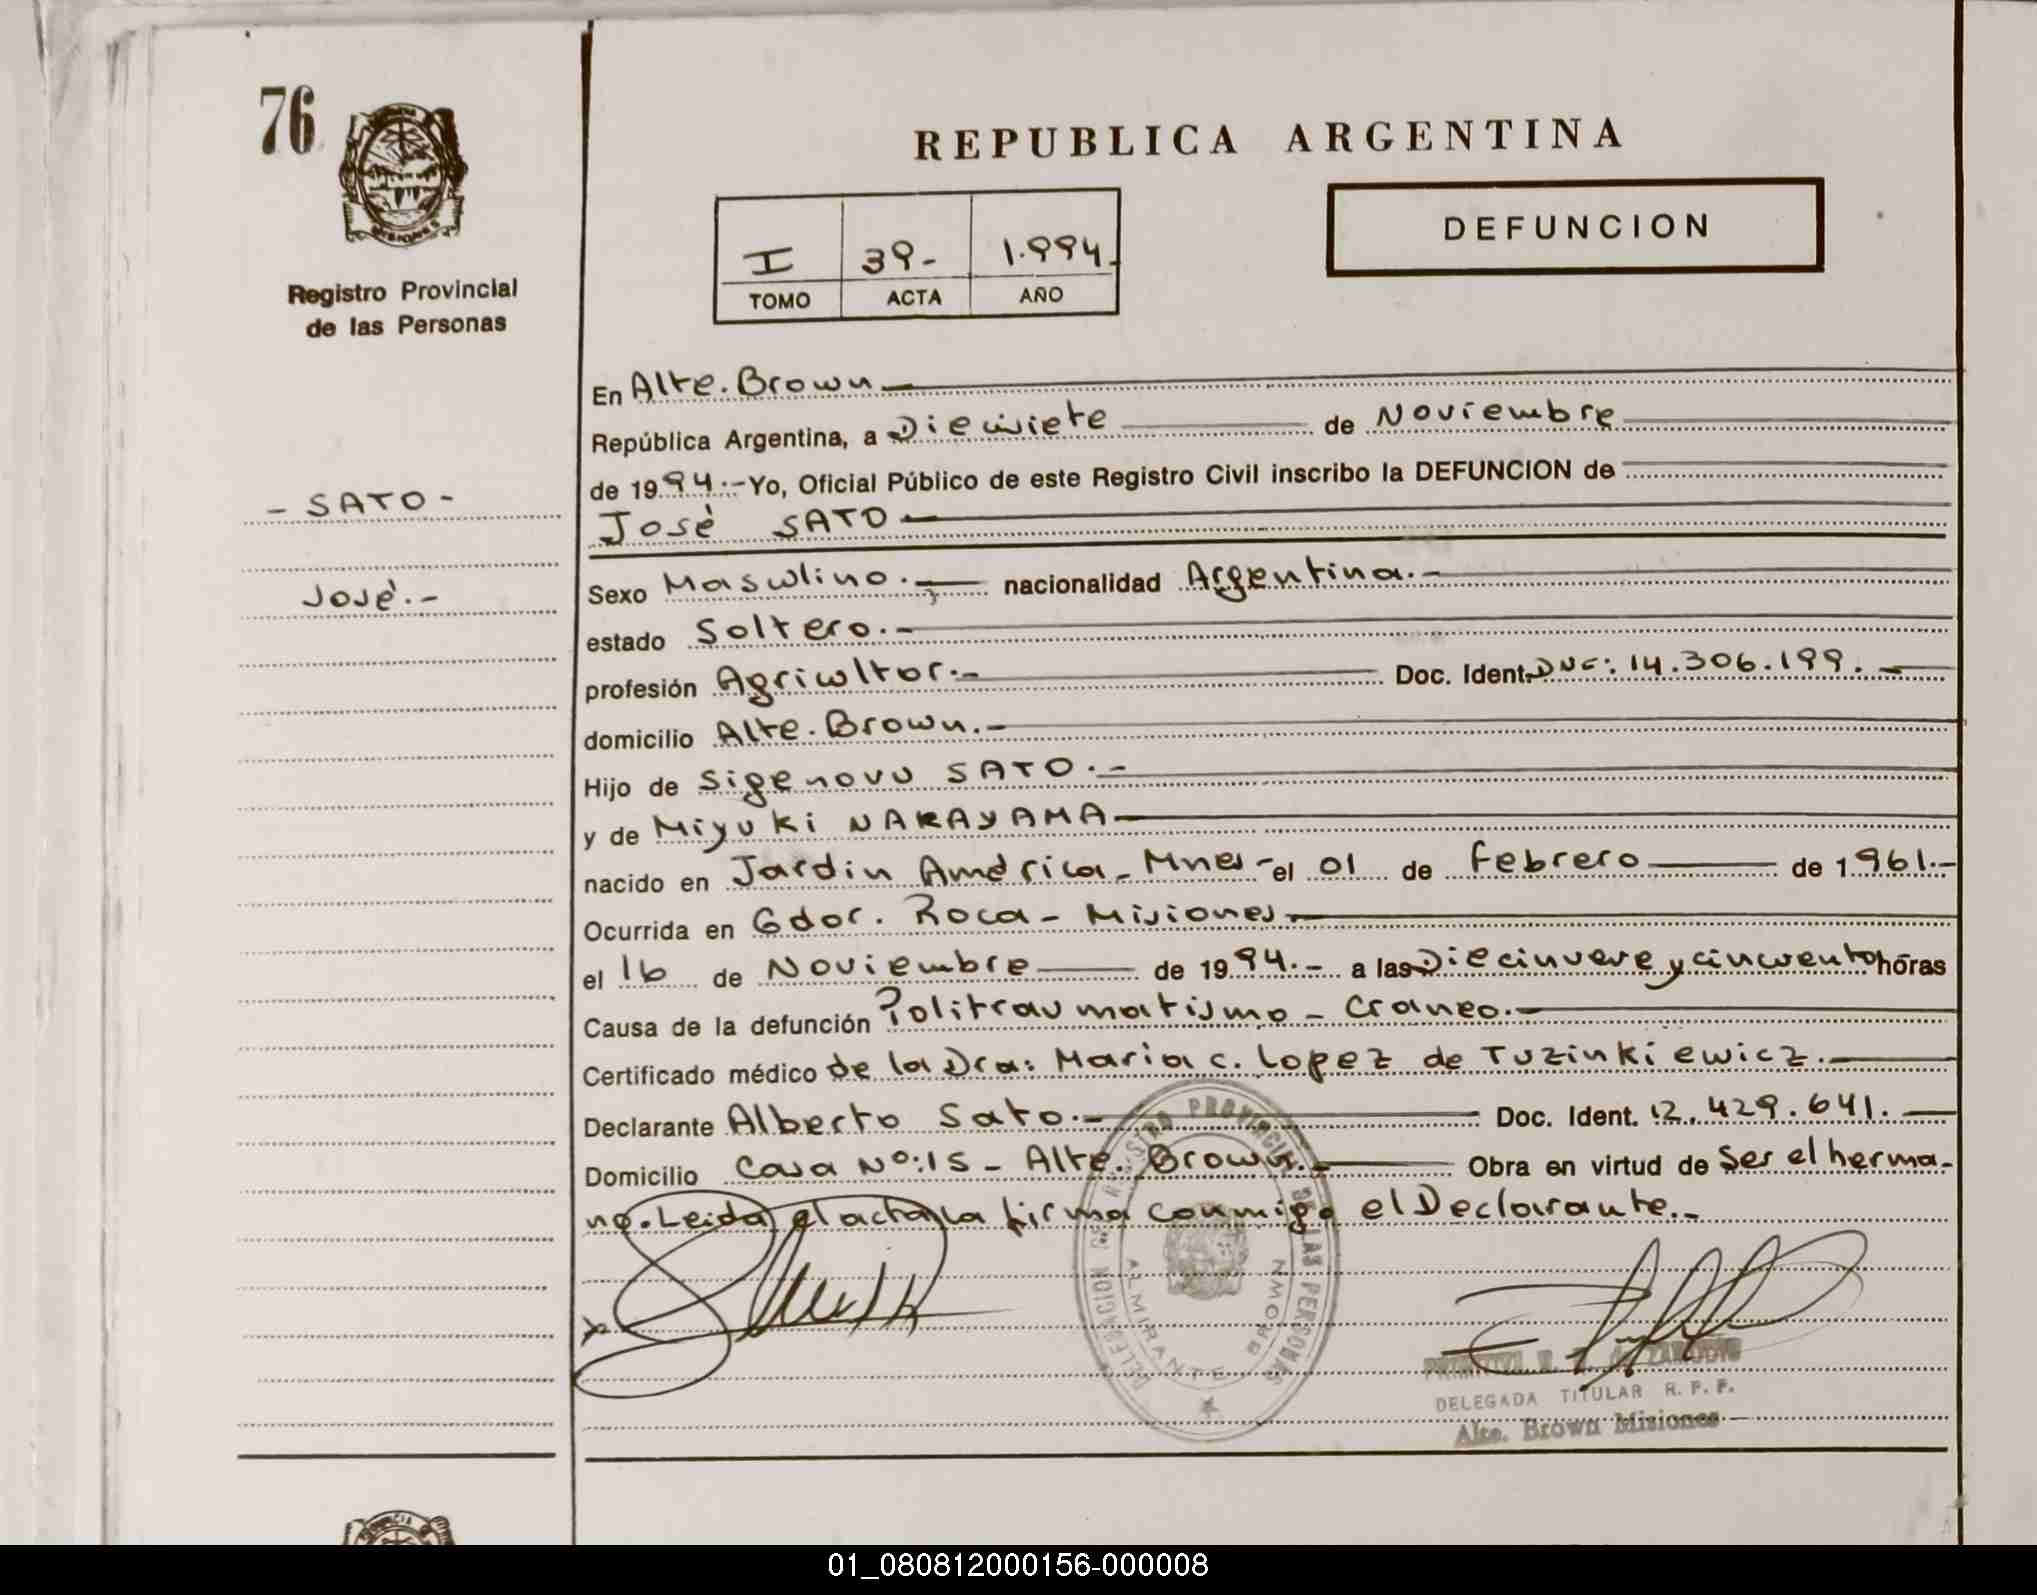 76
Registro Provincial
de las Personas
- SATO -
José.-
REPUBLICA ARGENTINA
I 39- 1.994.
TOMO ACTA AÑO
DEFUNCION
En Alte. Brown
República Argentina, a Diecisiete de Noviembre
de 1994.- Yo, Oficial Público de este Registro Civil inscribo la DEFUNCION de
José SATO
Sexo Masculino.- nacionalidad Argentina.-
estado Soltero.-
profesión Agricultor.- Doc. Ident. 14.306.199.-
domicilio Alte. Brown.-
Hijo de Sigenovu SATO.-
y de Miyuki NAKAYAMA
nacido en Jardin América - Mnes - el 01 de Febrero de 1961.-
Ocurrida en Gdor. Roca - Misiones
el 16 de Noviembre de 1994.- a las Diecinueve y cincuenta hóras
Causa de la defunción Politraumatismo - Craneo.-
Certificado médico de la Dra: Maria C. Lopez de Tuzinkiewicz.-
Declarante Alberto Sato.- Doc. Ident. 12.429.641.-
Domicilio Casa Nº: 15 - Alte. Brown.- Obra en virtud de Ser el herma-
no. Leida el acta la firma conmigo el Declarante.-
DELEGACION DEL REGISTRO PROVINCIAL DE LAS PERSONAS
ALMIRANTE BROWN
DELEGADA TITULAR R. P. P.
Alte. Brown Misiones
01_080812000156-000008